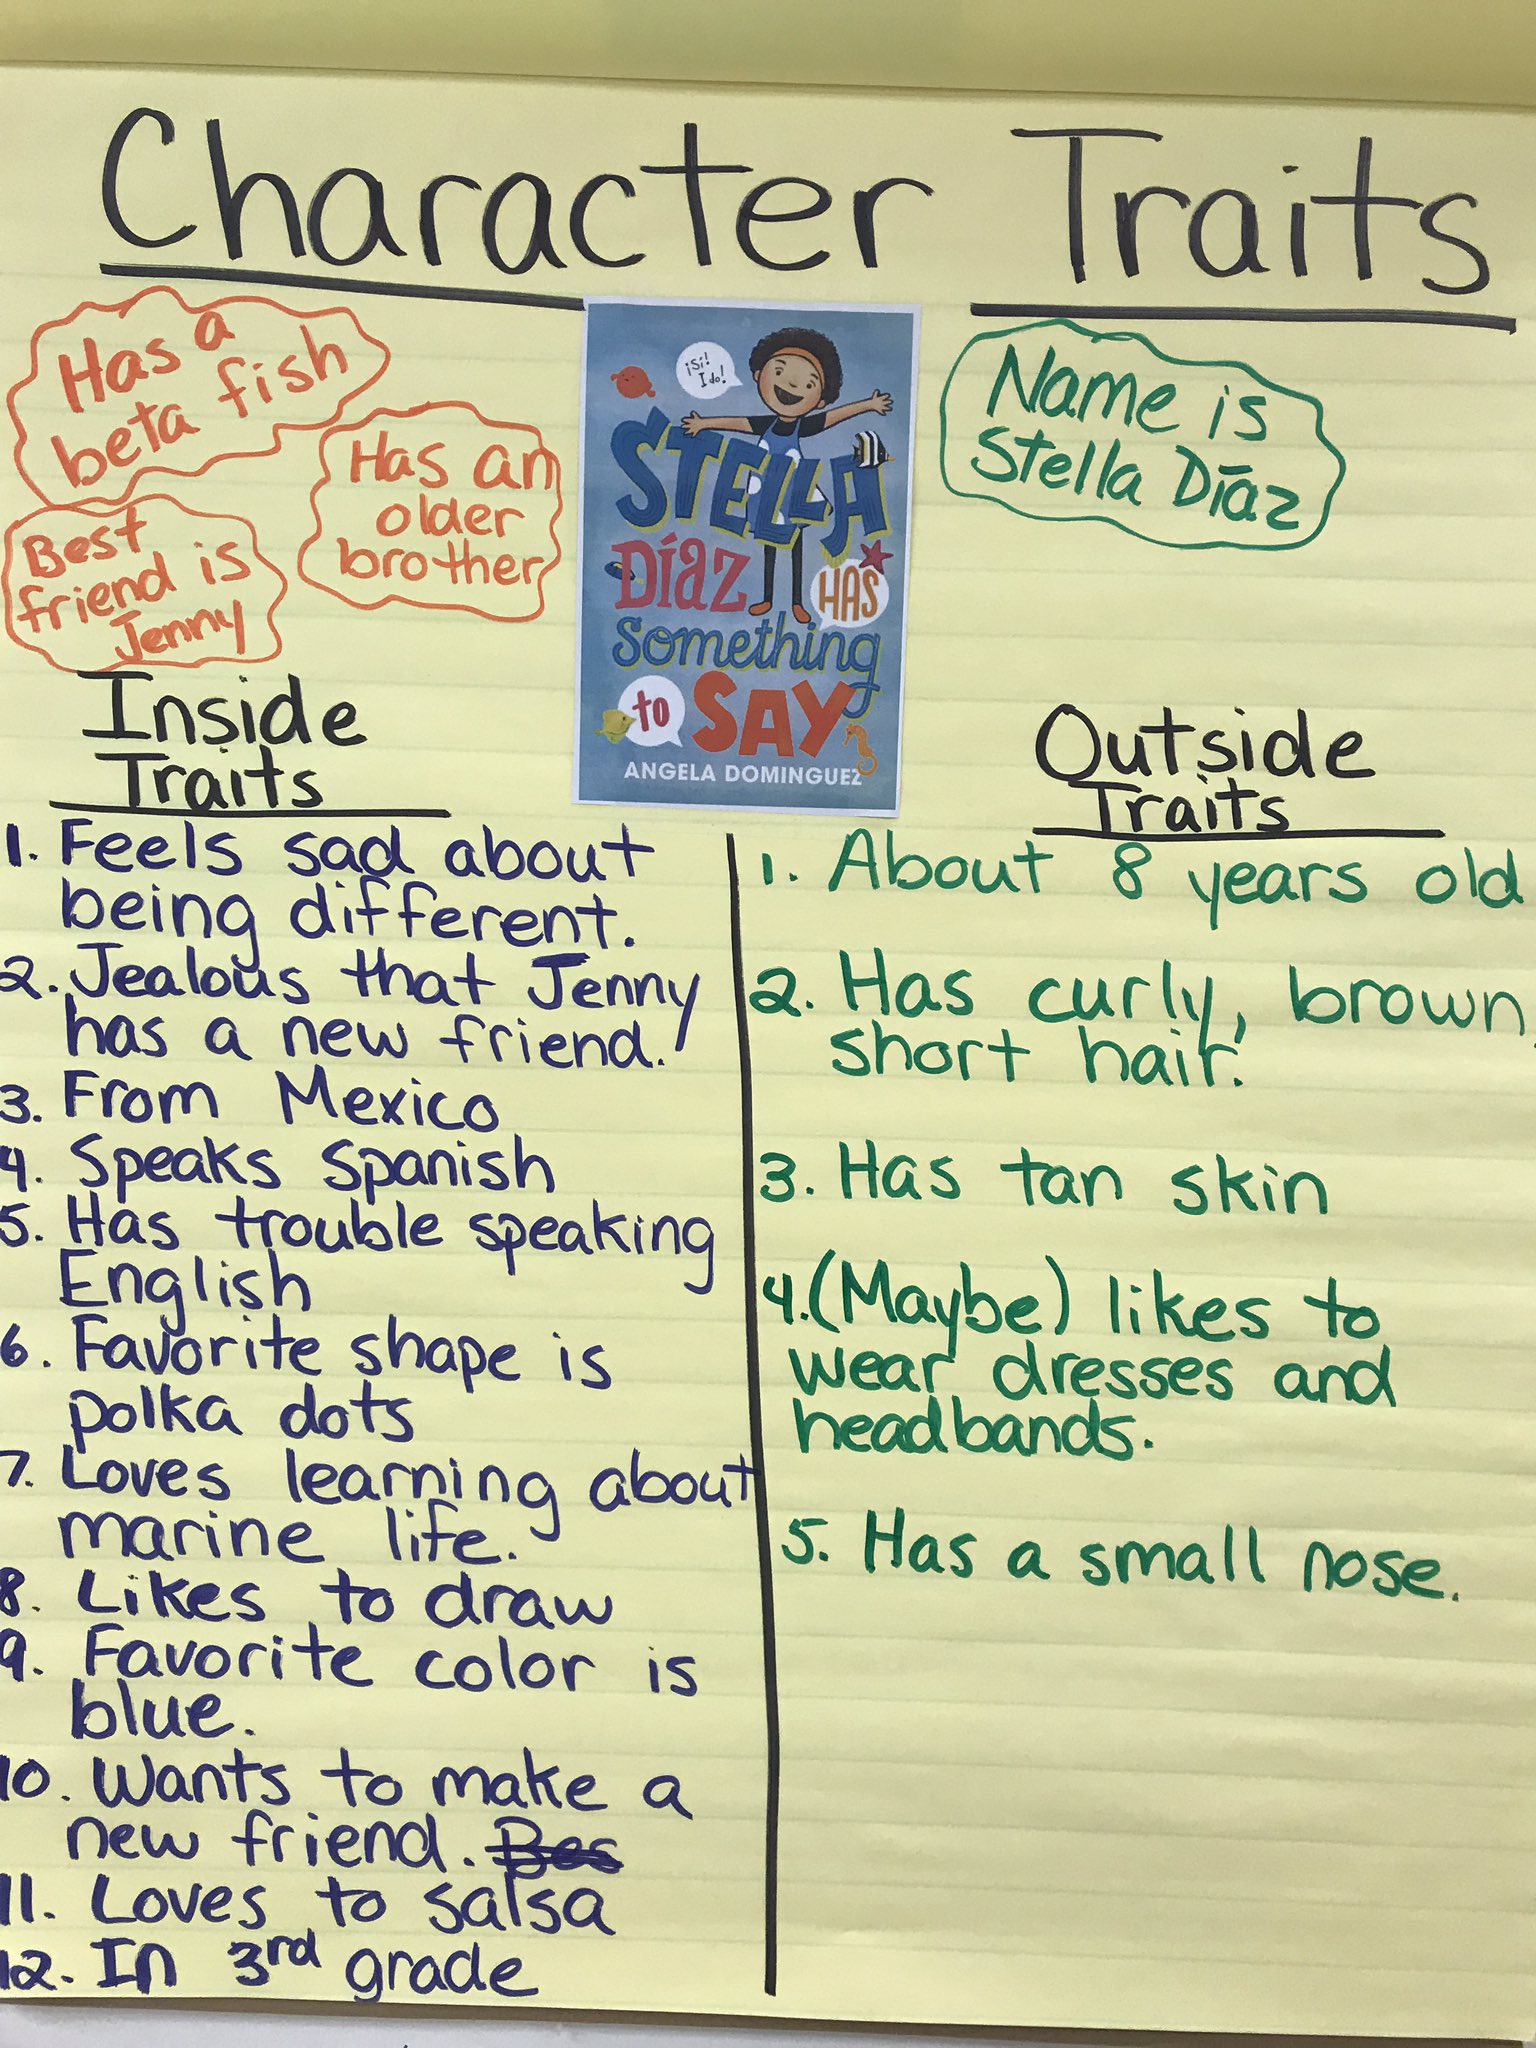 Character Traits
Has a
beta fish
Has an
older
brother
Best
friend is
Jenny
¡Sí!
I do!
STELLA
Díaz
HAS
something
to SAY
ANGELA DOMINGUEZ
Name is
Stella Díaz
Inside
Traits
1. Feels sad about
being different.
2. Jealous that Jenny
has a new friend.
3. From Mexico
4. Speaks Spanish
5. Has trouble speaking
English
6. Favorite shape is
polka dots
7. Loves learning about
marine life.
8. Likes to draw
9. Favorite color is
blue.
10. Wants to make a
new friend. Bes
11. Loves to salsa
12. In 3rd grade
Outside
Traits
1. About 8 years old
2. Has curly, brown,
short hair.
3. Has tan skin
4. (Maybe) likes to
wear dresses and
headbands.
5. Has a small nose.